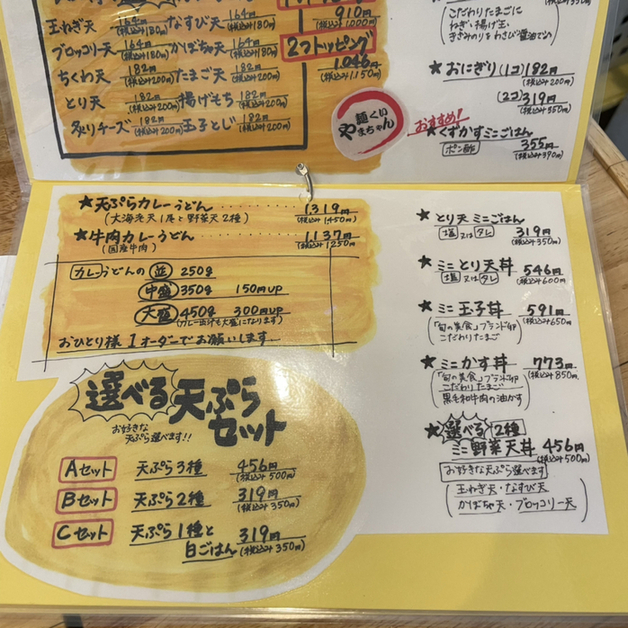 玉ねぎ天 164円(税込み180円) なすび天 164円(税込み180円)
ブロッコリー天 164円(税込み180円) かぼちゃ天 164円(税込み180円)
ちくわ天 182円(税込み200円) たまご天 182円(税込み200円)
とり天 182円(税込み200円) 揚げもち 182円(税込み200円)
炙りチーズ 182円(税込み200円) 玉子とじ 182円(税込み200円)
910円
(税込み1,000円)
2つトッピング
1,046円
(税込み1,150円)
麺くい
やまちゃん
こだわりたまごに
ねぎ・揚げ玉
きざみのりをわさび醤油で
★おにぎり(1コ)182円
(税込み200円)
(2コ)319円
(税込み350円)
おすすめ!
★くずかすミニごはん
ポン酢 355円
(税込み390円)
★天ぷらカレーうどん ‥‥‥ 1,319円
(大海老天1尾と野菜天2種) (税込み1450円)
★牛肉カレーうどん ‥‥‥ 1,137円
(国産牛肉) (税込み1250円)
カレーうどんの 並 250g
中盛 350g 150円UP
大盛 450g 300円UP
(カレー出汁も大盛になります)
おひとり様1オーダーでお願いします
選べる天ぷら
セット
お好きな
天ぷら選べます!!
Aセット 天ぷら3種 456円
(税込み500円)
Bセット 天ぷら2種 319円
(税込み350円)
Cセット 天ぷら1種と
白ごはん 319円
(税込み350円)
★とり天ミニごはん
塩 又は タレ 319円
(税込み350円)
★ミニとり天丼 546円
塩 又は タレ (税込み600円)
★ミニ玉子丼 591円
(税込み650円)
「旬の美食」ブランド卵
こだわりたまご
★ミニかす丼 773円
(税込み850円)
「旬の美食」ブランド卵
こだわりたまご
黒毛和牛肉の油かす
★選べる2種
ミニ野菜天丼 456円
(税込み500円)
お好きな天ぷら選べます
玉ねぎ天・なすび天
かぼちゃ天・ブロッコリー天